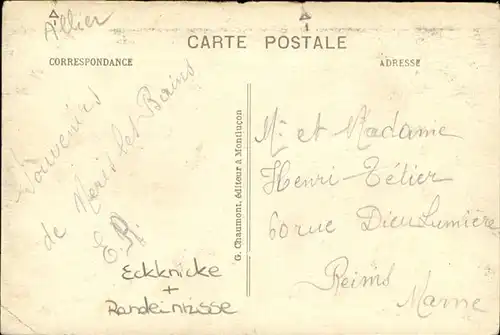 Allier
CARTE POSTALE
CORRESPONDANCE
ADRESSE
Souvenirs
de Néris les Bains
E.R.
G. Chaumont, éditeur à Montluçon
Mr et Madame
Henri Télier
60 rue Dieu Lumière
Reims
Marne
Eckknicke
+
Randeinrisse